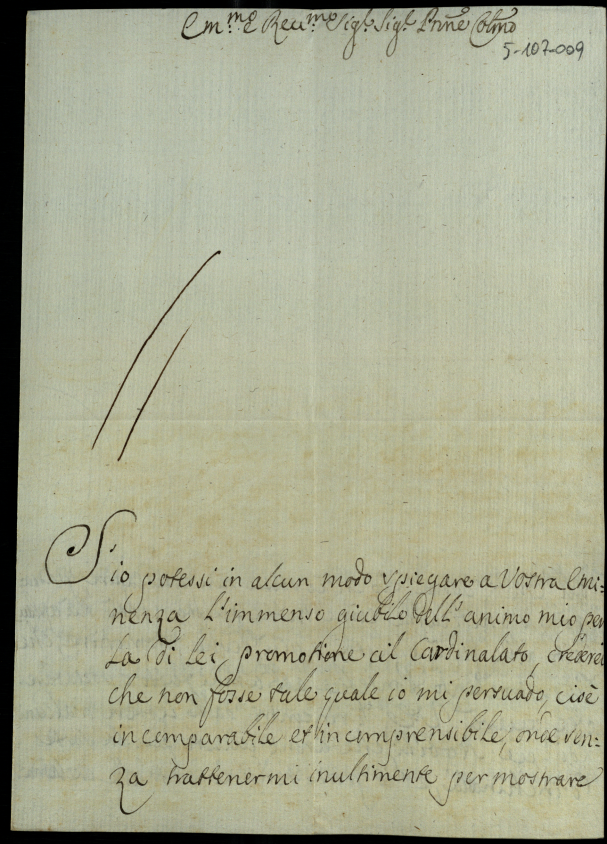 Em.mo e Reu.mo Sig.r Sig.r Prne Colmo
5-107-009
S'io potessi in alcun modo spiegare a Vostra Emi=
nenza l'immenso giubilo dell'animo mio per
la di lei promotione al Cardinalato, crederei
che non fosse tale quale io mi persuado, cioè
incomparabile et incomprensibile; onde sen=
za trattenermi inultimente per mostrare